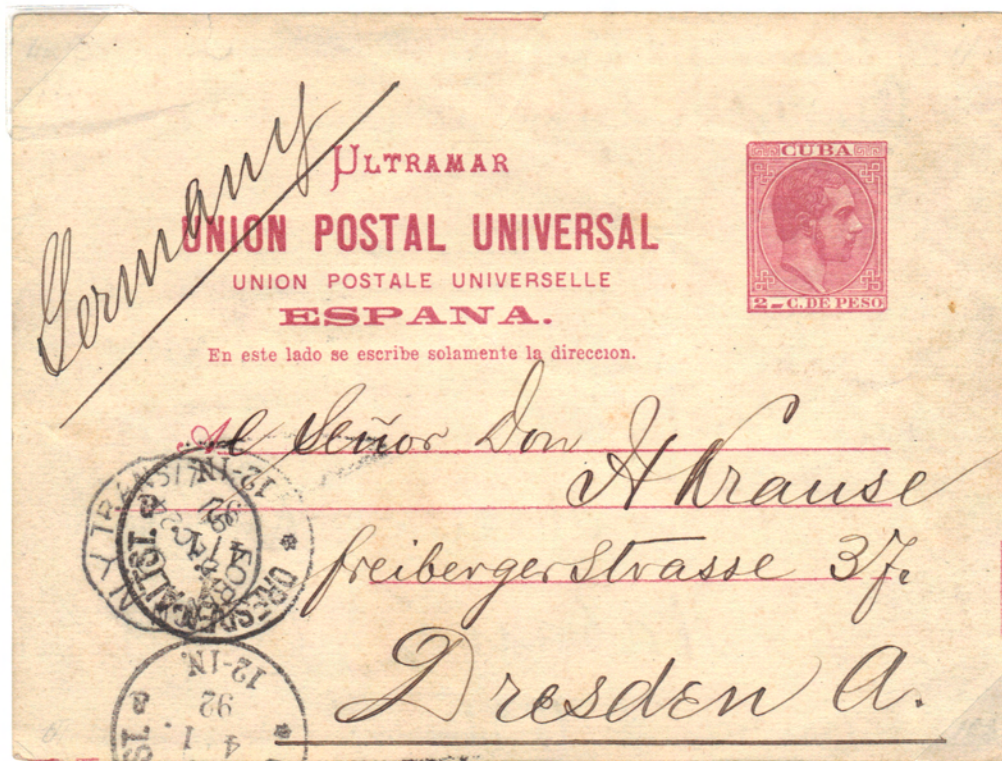 Germany
ULTRAMAR
CUBA
UNION POSTAL UNIVERSAL
UNION POSTALE UNIVERSELLE
ESPANA.
2 C. DE PESO
En este lado se escribe solamente la direccion.
Al Señor Don
H Krause
freibergerstrasse 37.
Dresden A.
N.Y. TRANSIT
DRESDEN ALTST.
4 1
92
12-1N.
4 1
92
12-1N.